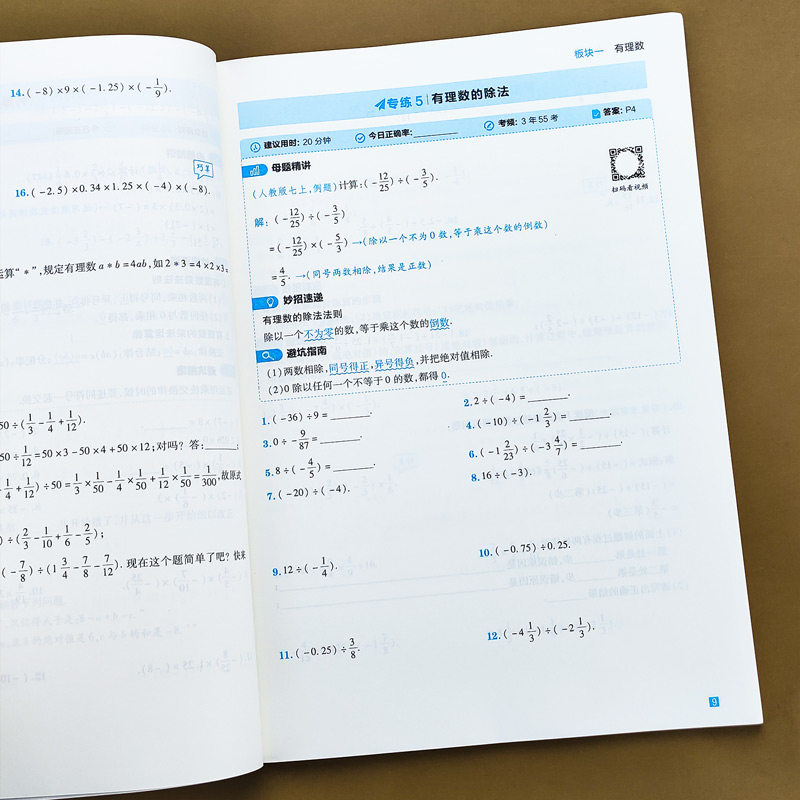 14.(-8)×9×(-1.25)×(-1/9).
巧算
16.(-2.5)×0.34×1.25×(-4)×(-8).
运算“*”,规定有理数a*b=4ab,如2*3=4×2×3=
50÷(1/3-1/4+1/12).
50÷1/12=50×3-50×4+50×12;对吗?答:______;
1/4+1/12)÷50=1/3×1/50-1/4×1/50+1/12×1/50=1/300,故原式
÷(2/3-1/10+1/6-2/5);
÷(-7/8)÷(1 3/4-7/8-7/12).现在这个题简单了吧?快来
板块一 有理数
专练5|有理数的除法
建议用时:20分钟 今日正确率:______ 考频:3年55考 答案:P4
母题精讲
(人教版七上,例题)计算:(-12/25)÷(-3/5).
扫码看视频
解:(-12/25)÷(-3/5)
=(-12/25)×(-5/3)→(除以一个不为0数,等于乘这个数的倒数)
=4/5.→(同号两数相除,结果是正数)
妙招速递
有理数的除法法则
除以一个不为零的数,等于乘这个数的倒数.
避坑指南
(1)两数相除,同号得正,异号得负,并把绝对值相除.
(2)0除以任何一个不等于0的数,都得0.
1.(-36)÷9=______.
2.2÷(-4)=______.
3.0÷-9/87=______.
4.(-10)÷(-1 2/3)=______.
5.8÷(-4/5)=______.
6.(-1 2/23)÷(-3 4/7)=______.
7.(-20)÷(-4).
8.16÷(-3).
9.12÷(-1/4).
10.(-0.75)÷0.25.
11.(-0.25)÷3/8.
12.(-4 1/3)÷(-2 1/3).
9